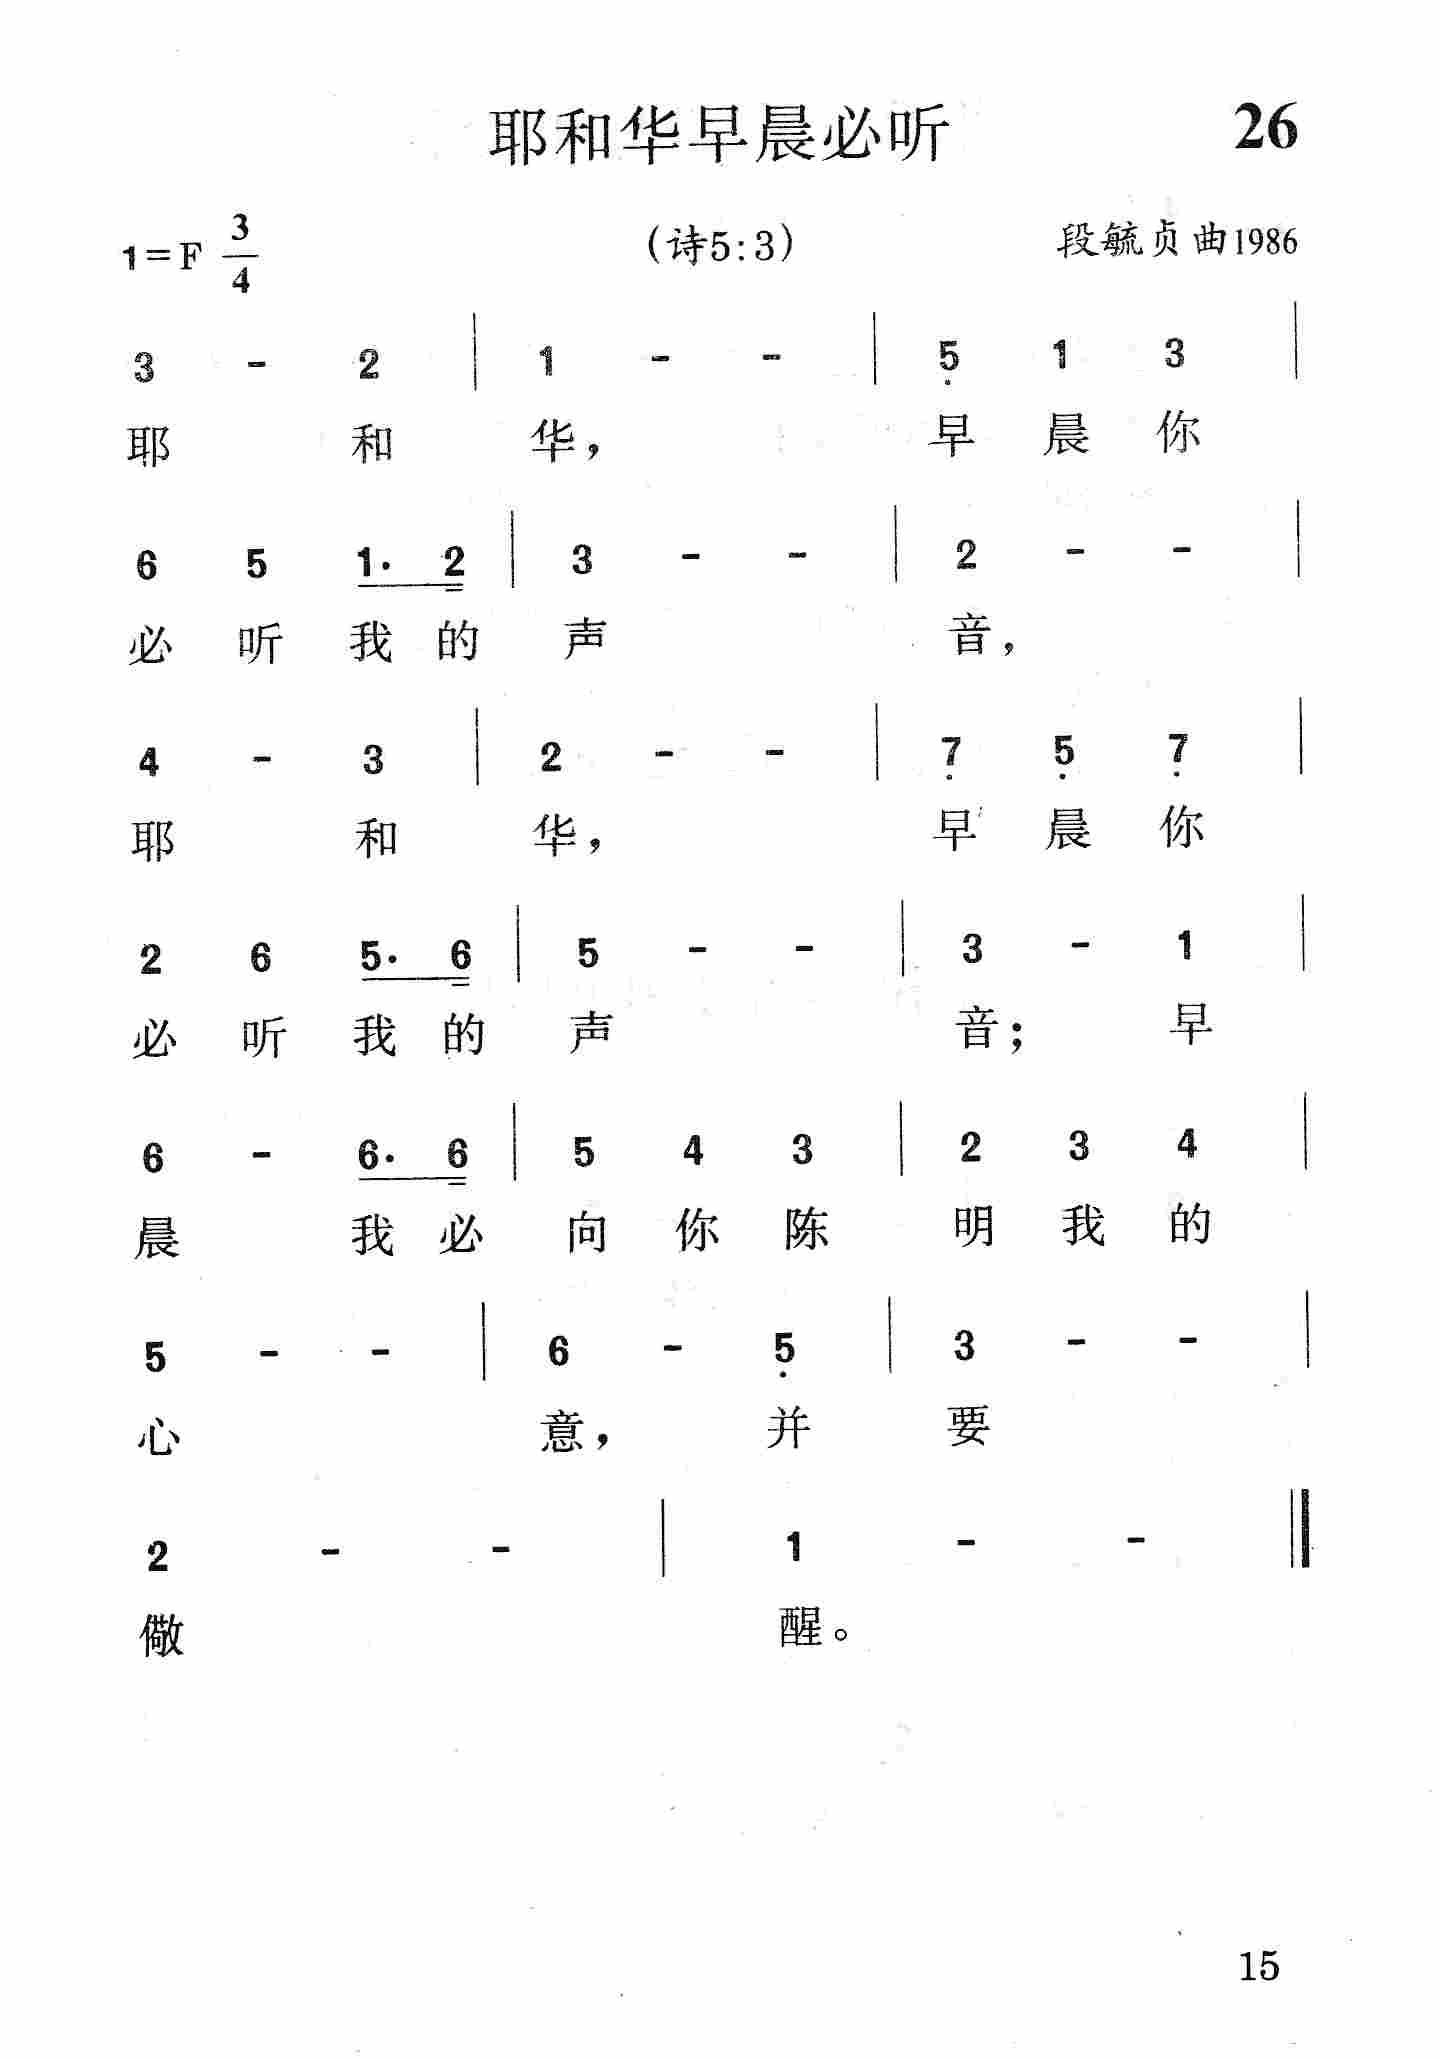 耶和华早晨必听 26
1=F 3/4 (诗5:3) 段毓贞曲1986
3 - 2 | 1 - - | 5̣ 1 3 |
耶 和 华， 早 晨 你
6 5 1· 2 | 3 - - | 2 - - |
必 听 我 的 声 音，
4 - 3 | 2 - - | 7̣ 5̣ 7̣ |
耶 和 华， 早 晨 你
2 6 5· 6 | 5 - - | 3 - 1 |
必 听 我 的 声 音； 早
6 - 6· 6 | 5 4 3 | 2 3 4 |
晨 我 必 向 你 陈 明 我 的
5 - - | 6 - 5̣ | 3 - - |
心 意， 并 要
2 - - | 1 - - ‖
儆 醒。
15